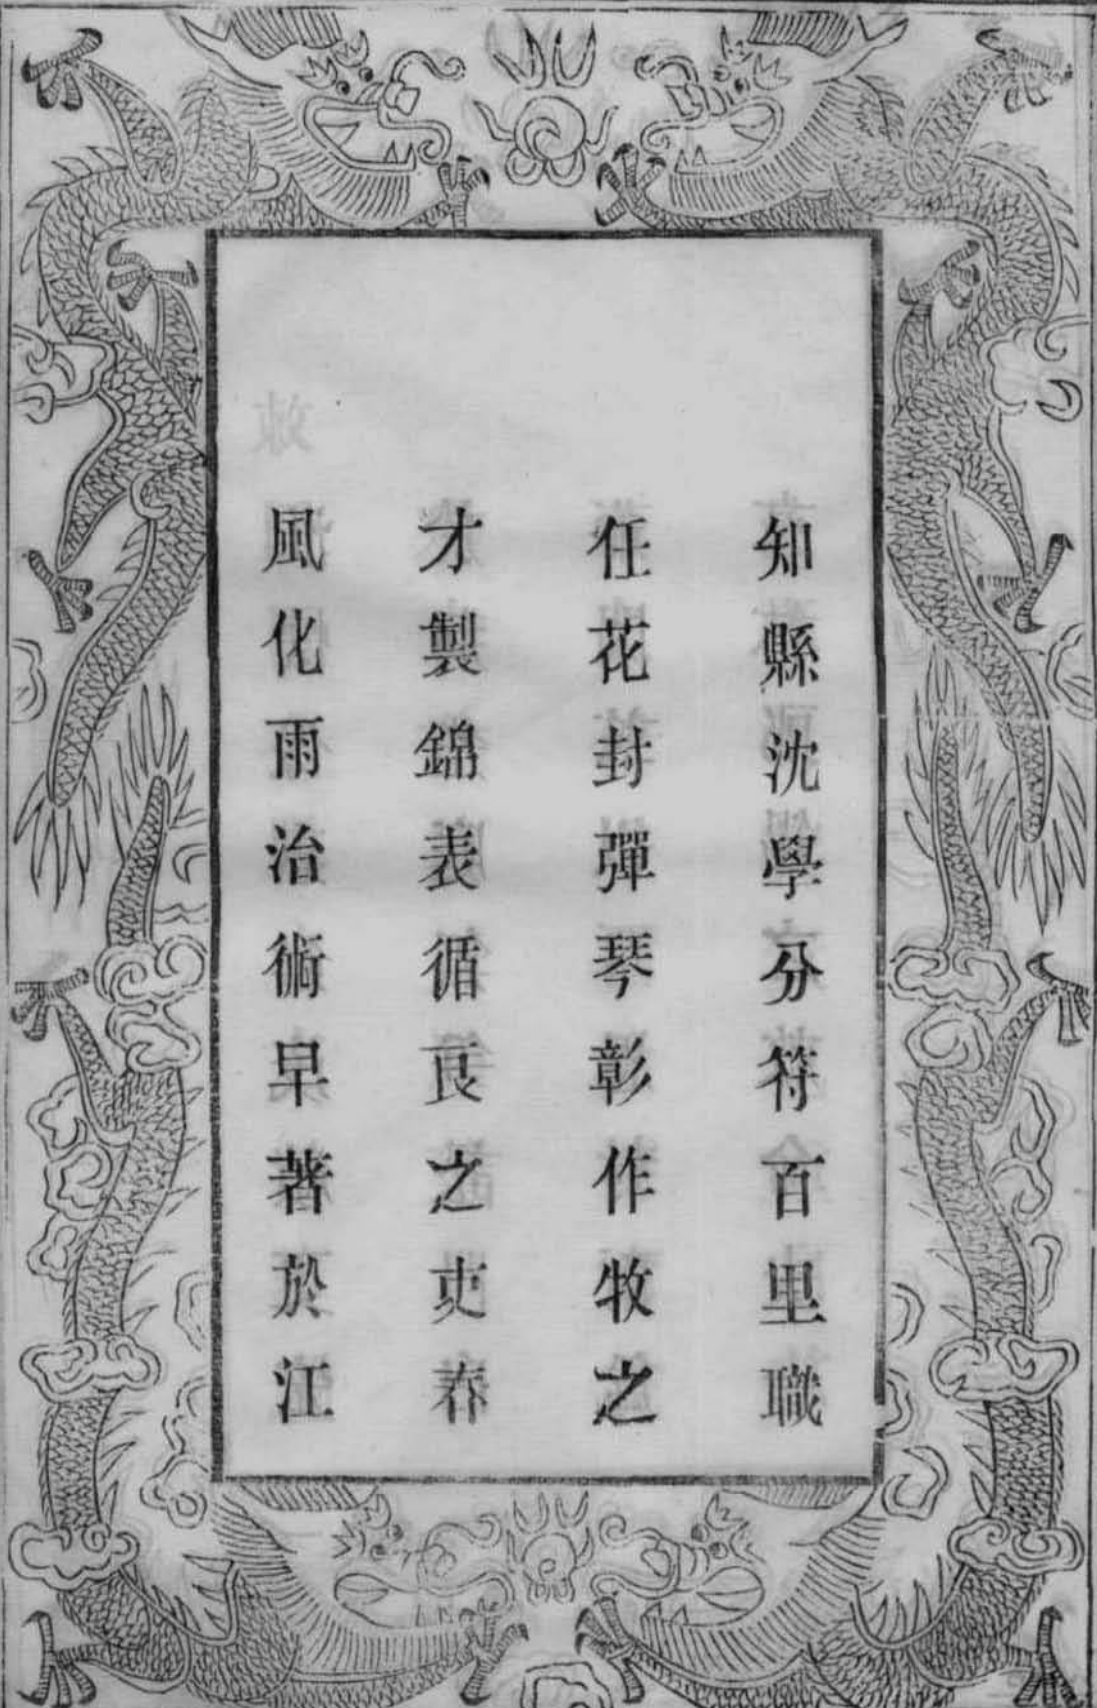 知縣沈學分符百里職
任花封彈琴彰作牧之
才製錦表循良之吏春
風化雨治術早著於江